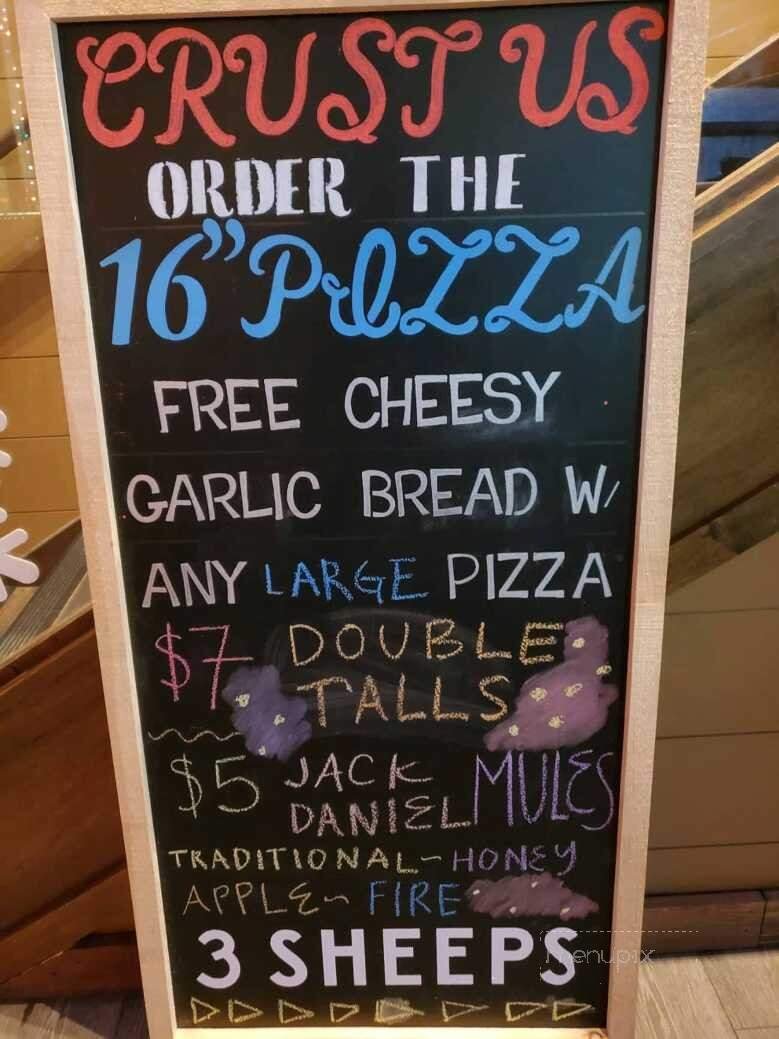 CRUST US
ORDER THE
16" PIZZA
FREE CHEESY
GARLIC BREAD W/
ANY LARGE PIZZA
$7 DOUBLE
TALLS
$5 JACK
DANIEL MULES
TRADITIONAL~HONEY
APPLE~ FIRE
3 SHEEPS
menupix